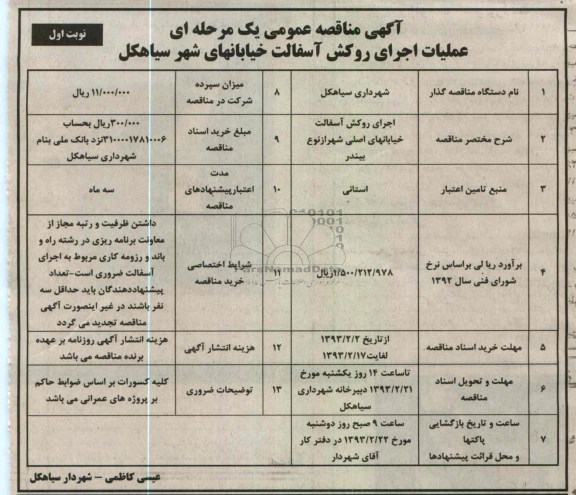 آگهی مناقصه عمومی یک مرحله ای
عملیات اجرای روکش آسفالت خیابانهای شهر سیاهکل
نوبت اول
۱
نام دستگاه مناقصه گذار
شهرداری سیاهکل
۸
میزان سپرده
شرکت در مناقصه
۱۱/۰۰۰/۰۰۰ ریال
۲
شرح مختصر مناقصه
اجرای روکش آسفالت
خیابانهای اصلی شهرازنوع
بیندر
۹
مبلغ خرید اسناد
مناقصه
۳۰۰/۰۰۰ریال بحساب
۳۱۰۰۰۰۱۷۸۱۰۰۰۶نزد بانک ملی بنام
شهرداری سیاهکل
۳
منبع تامین اعتبار
استانی
۱۰
مدت
اعتبارپیشنهادهای
مناقصه
سه ماه
۴
برآورد ریا لی براساس نرخ
شورای فنی سال ۱۳۹۲
۱/۵۰۰/۲۱۲/۹۷۸ریال
۱۱
شرایط اختصاصی
خرید مناقصه
داشتن ظرفیت و رتبه مجاز از
معاونت برنامه ریزی در رشته راه و
باند و رزومه کاری مربوط به اجرای
آسفالت ضروری است-تعداد
پیشنهاددهندگان باید حداقل سه
نفر باشند در غیر اینصورت آگهی
مناقصه تجدید می گردد
۵
مهلت خرید اسناد مناقصه
ازتاریخ ۱۳۹۳/۲/۲
لغایت۱۳۹۳/۲/۱۷
۱۲
هزینه انتشار آگهی
هزینه انتشار آگهی روزنامه بر عهده
برنده مناقصه می باشد
۶
مهلت و تحویل اسناد
مناقصه
تاساعت ۱۴ روز یکشنبه مورخ
۱۳۹۳/۲/۲۱ دبیرخانه شهرداری
سیاهکل
۱۳
توضیحات ضروری
کلیه کسورات بر اساس ضوابط حاکم
بر پروژه های عمرانی می باشد
۷
ساعت و تاریخ بازگشایی
پاکتها
و محل قرائت پیشنهادها
ساعت ۹ صبح روز دوشنبه
مورخ ۱۳۹۳/۲/۲۲ در دفتر کار
آقای شهردار
عیسی کاظمی – شهردار سیاهکل